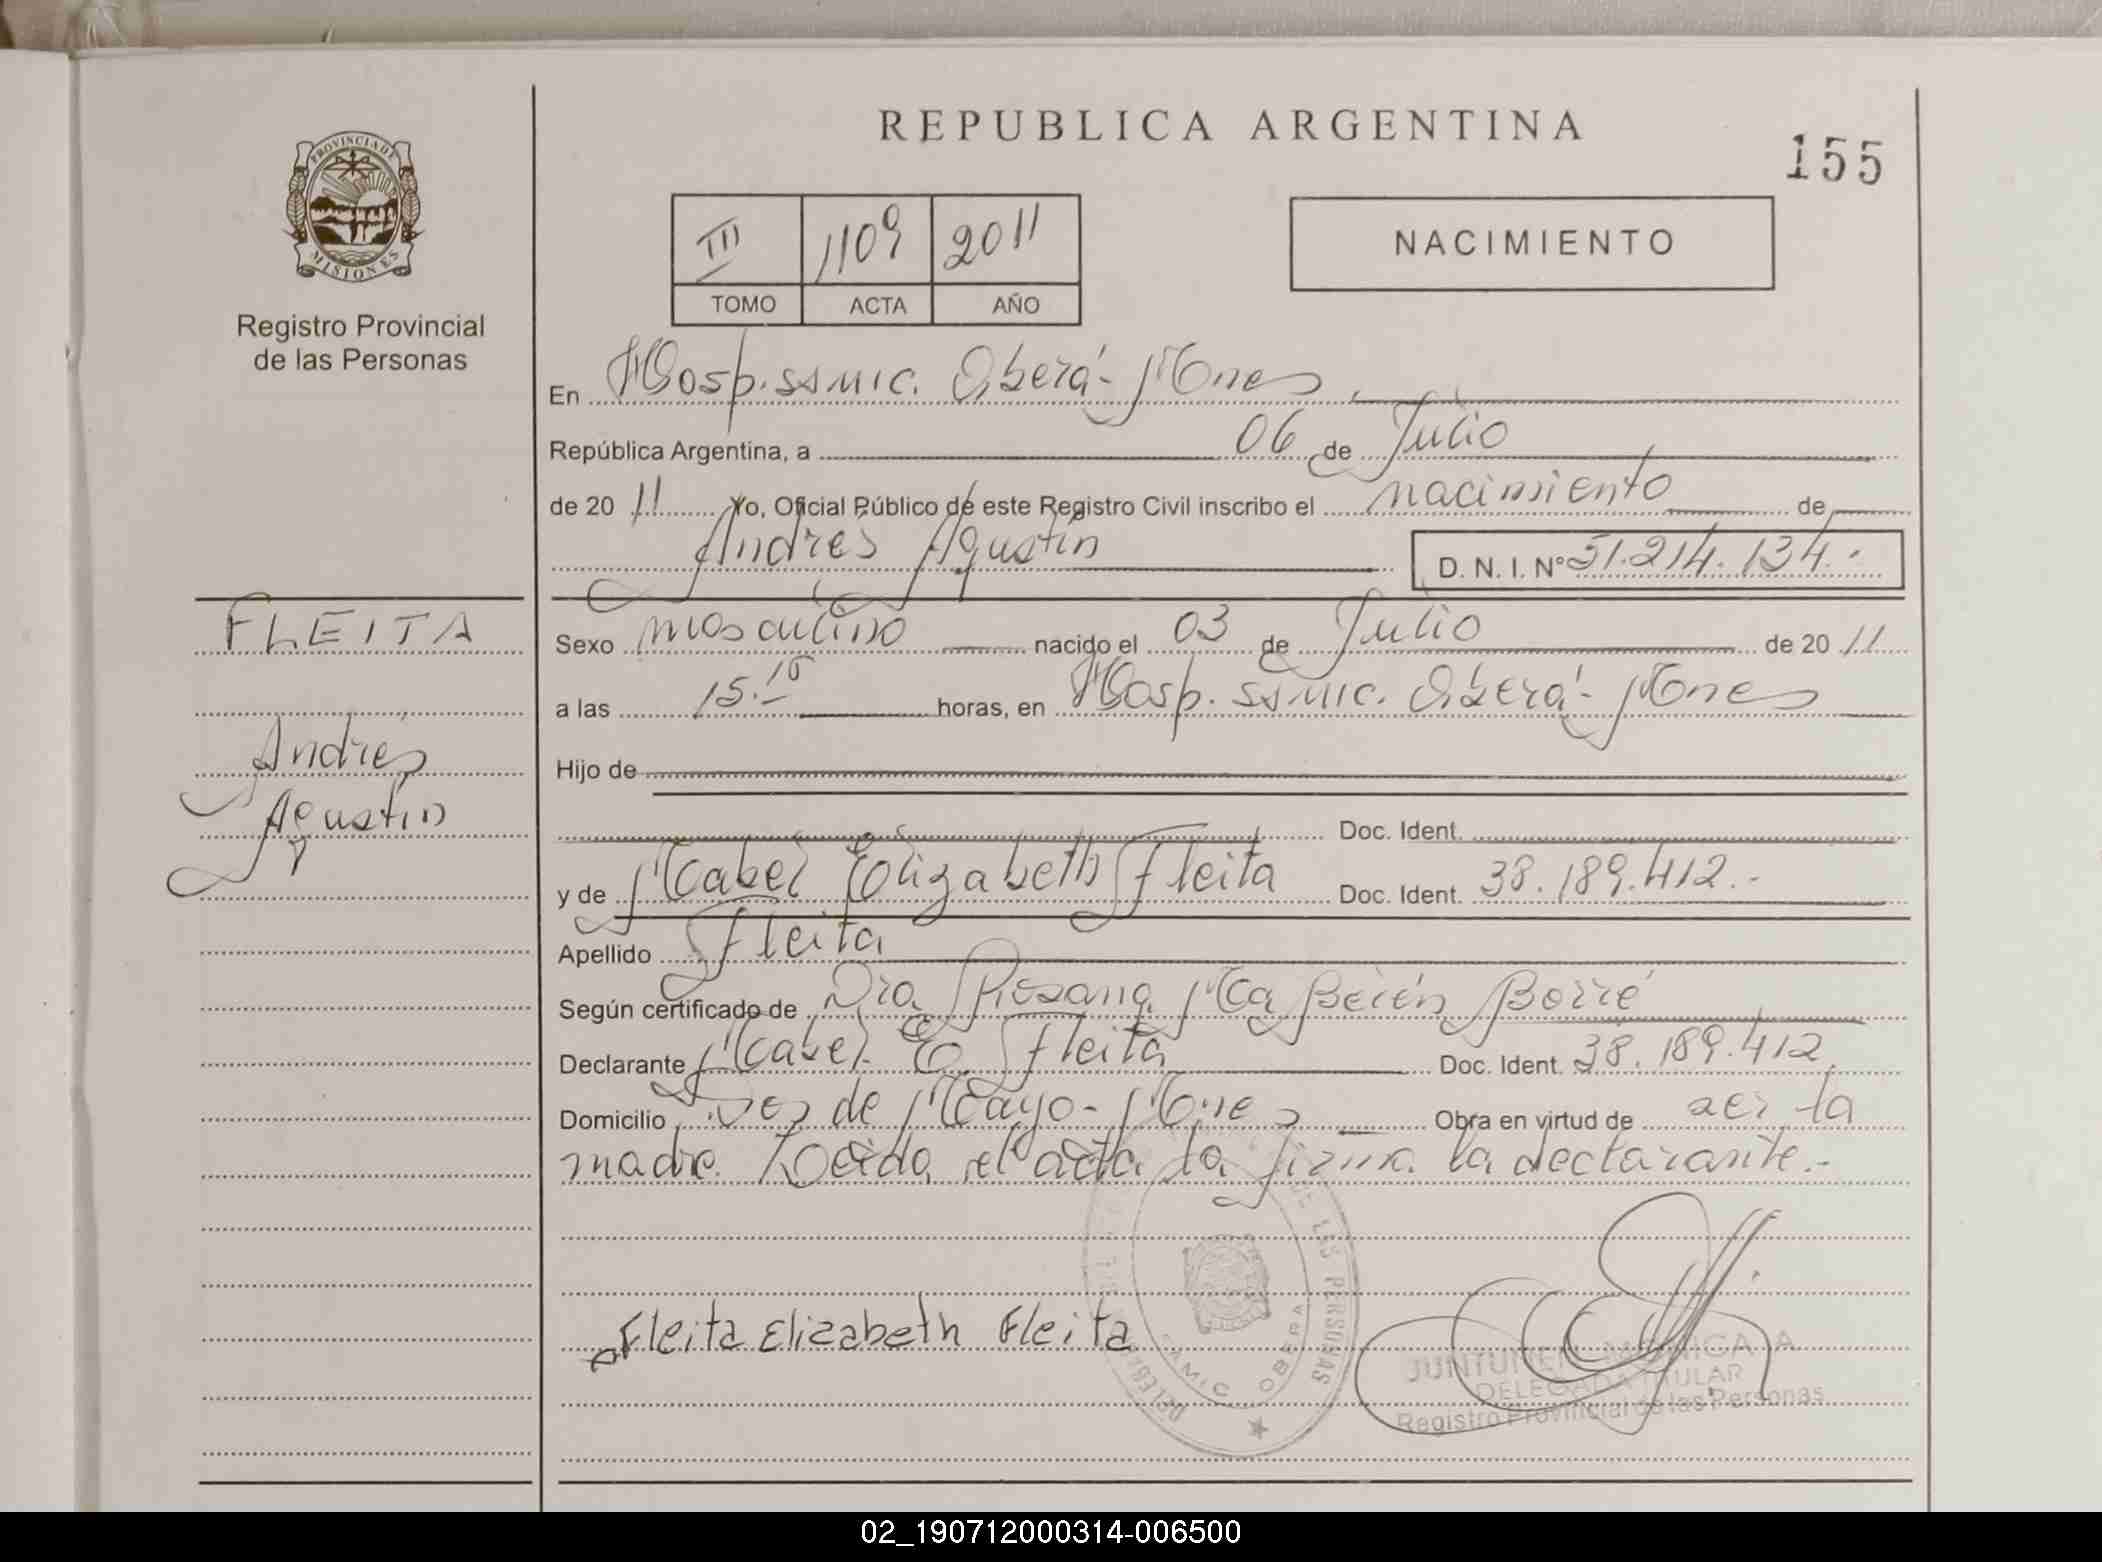 REPUBLICA ARGENTINA
155
PROVINCIA DE
MISIONES
Registro Provincial
de las Personas
III 1109 2011
TOMO ACTA AÑO
NACIMIENTO
En Hosp. SAMIC. Oberá - Mnes
República Argentina, a 06 de Julio
de 2011 Yo, Oficial Público de este Registro Civil inscribo el nacimiento de
Andrés Agustín
D. N. I. Nº 51.214.134.-
FLEITA
Andrés
Agustín
Sexo masculino nacido el 03 de Julio de 2011
a las 15.15 horas, en Hosp. SAMIC. Oberá - Mnes
Hijo de
Doc. Ident.
y de Mabel Elizabeth Fleita Doc. Ident. 38.189.412.-
Apellido Fleita
Según certificado de Dra Rosana Ma Belén Borré
Declarante Mabel E. Fleita Doc. Ident. 38.189.412
Domicilio Dos de Mayo - Mnes Obra en virtud de ser la
madre. Leída el acta la firma la declarante.-
Fleita Elizabeth Fleita
DE LAS PERSONAS
SAMIC OBERA
JUNTUNEN MONICA A
DELEGADA TITULAR
Registro Provincial de las Personas
02_190712000314-006500